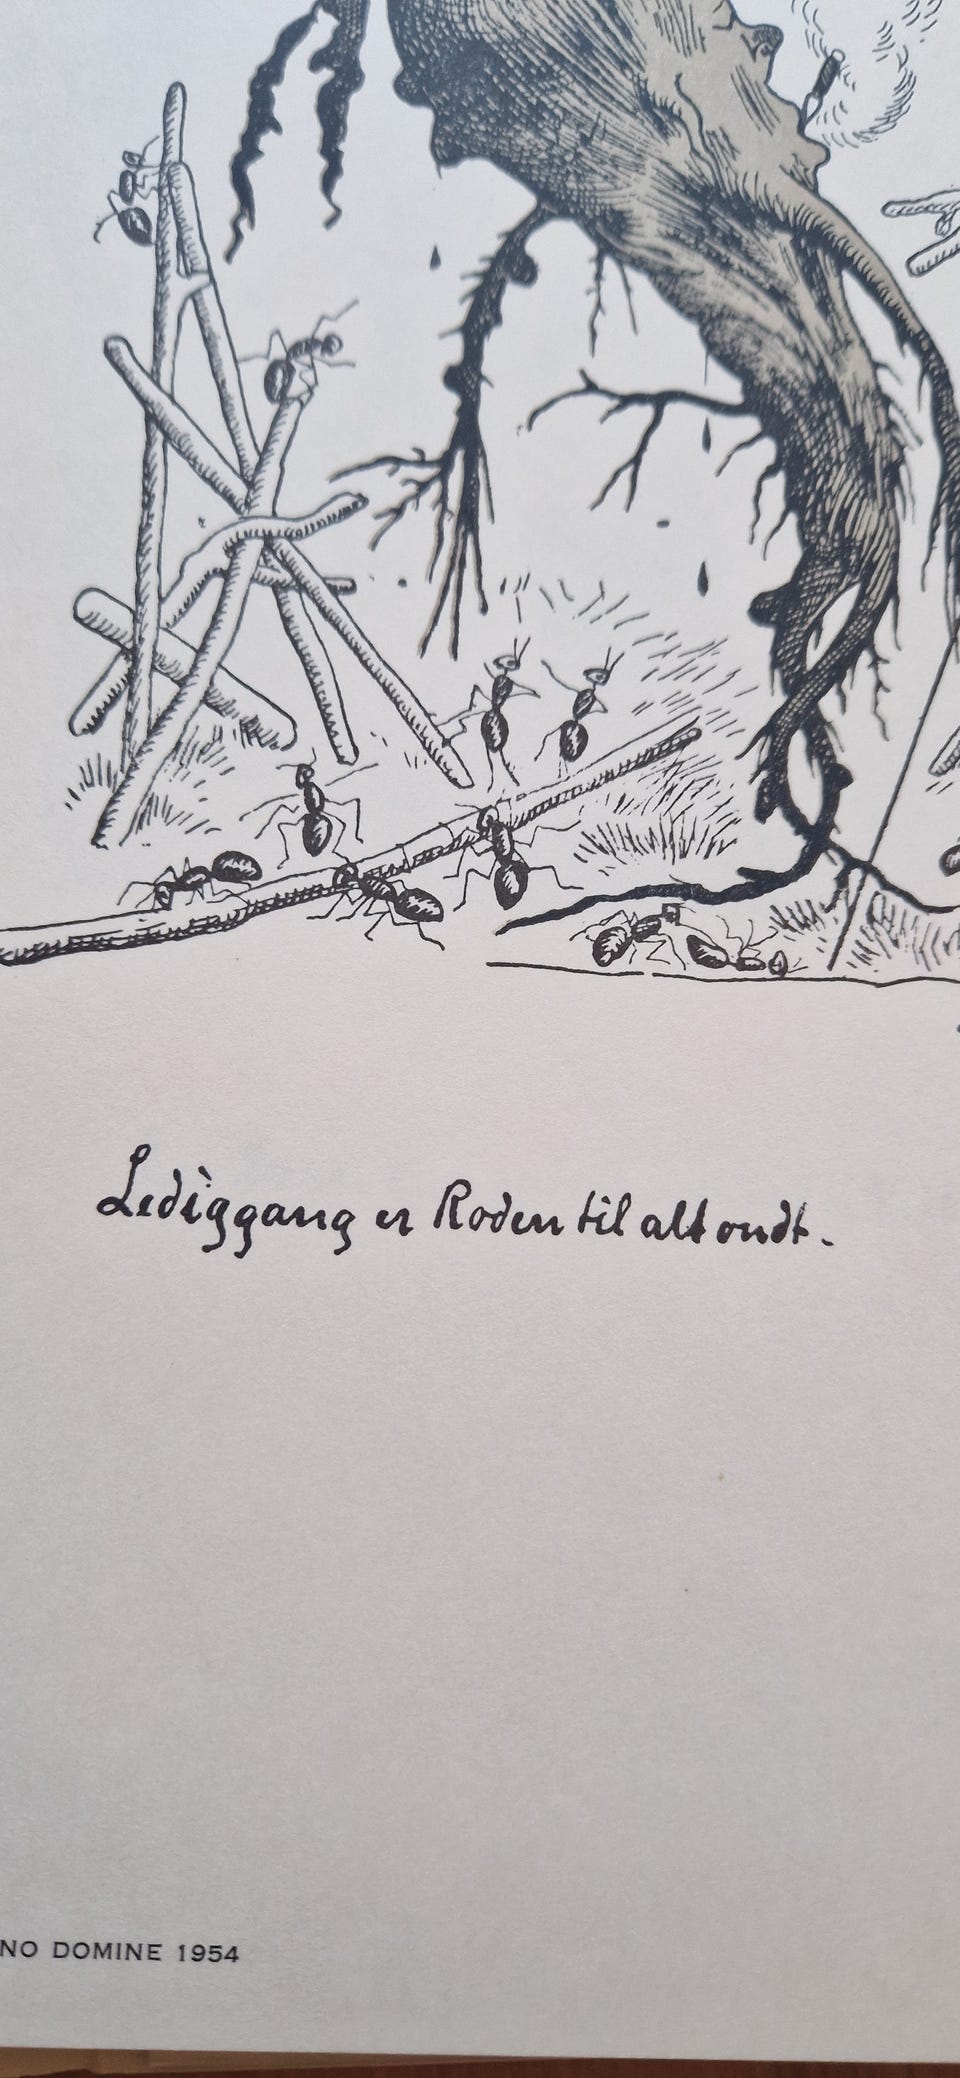 Lediggang er Roden til alt ondt.
NO DOMINE 1954